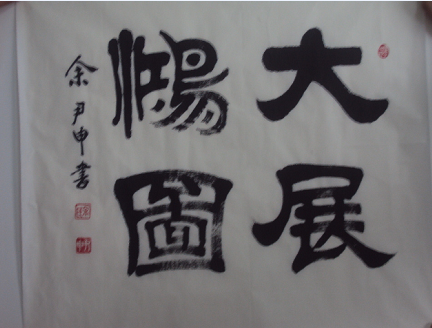 大展
鴻圖
余尹申書